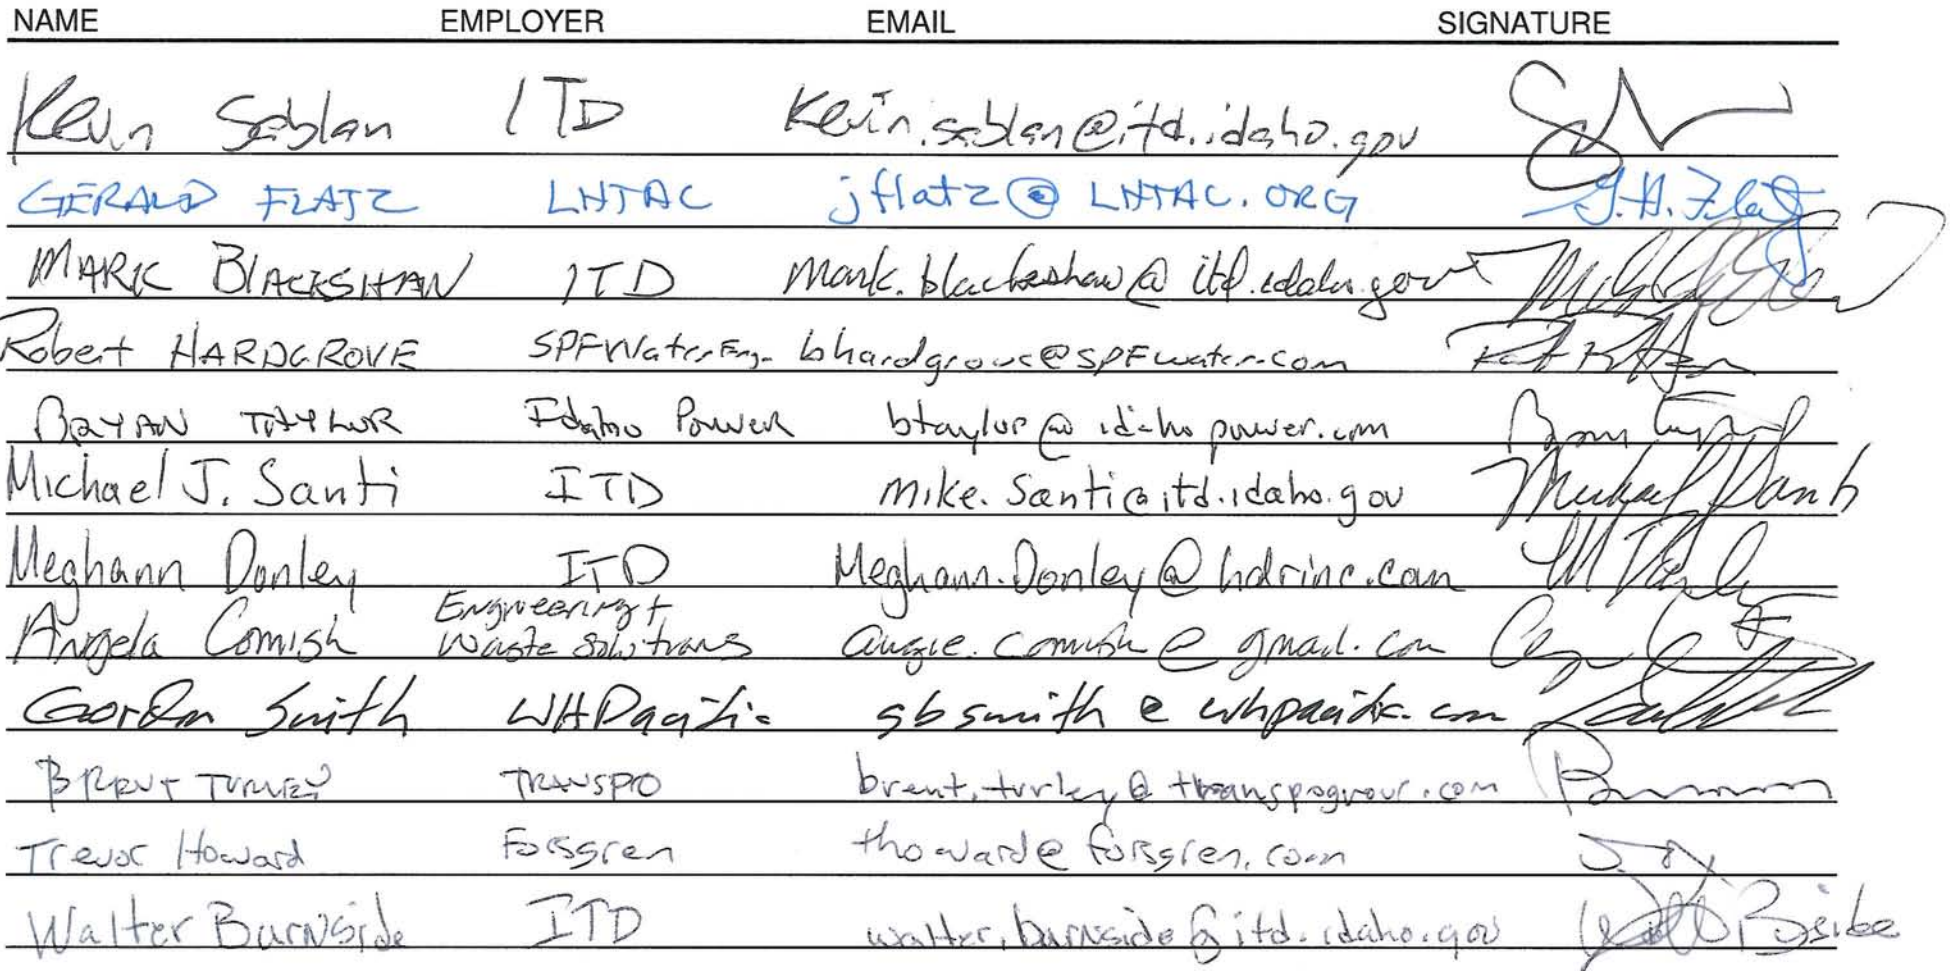 NAME EMPLOYER EMAIL SIGNATURE
Kevin Sablan ITD Kevin.sablan@itd.idaho.gov
GERALD FLATZ LHTAC jflatz@LHTAC.ORG J.H. Flatz
MARK BLACKSHAW ITD mark.blackshaw@itd.idaho.gov
Robert HARDGROVE SPFWater Eng. bhardgrove@SPFwater.com
BRYAN TAYLOR Idaho Power btaylor@idahopower.com
Michael J. Santi ITD mike.santi@itd.idaho.gov Michael J Santi
Meghann Donley ITD Meghann.Donley@hdrinc.com
Engineering +
Angela Comish Waste Solutions angie.comish@gmail.com
Gordon Smith WHPacific gbsmith@whpacific.com
BRENT TURLEY TRANSPO brent.turley@transpogroup.com
Trevor Howard Forsgren thoward@forsgren.com
Walter Burnside ITD walter.burnside@itd.idaho.gov